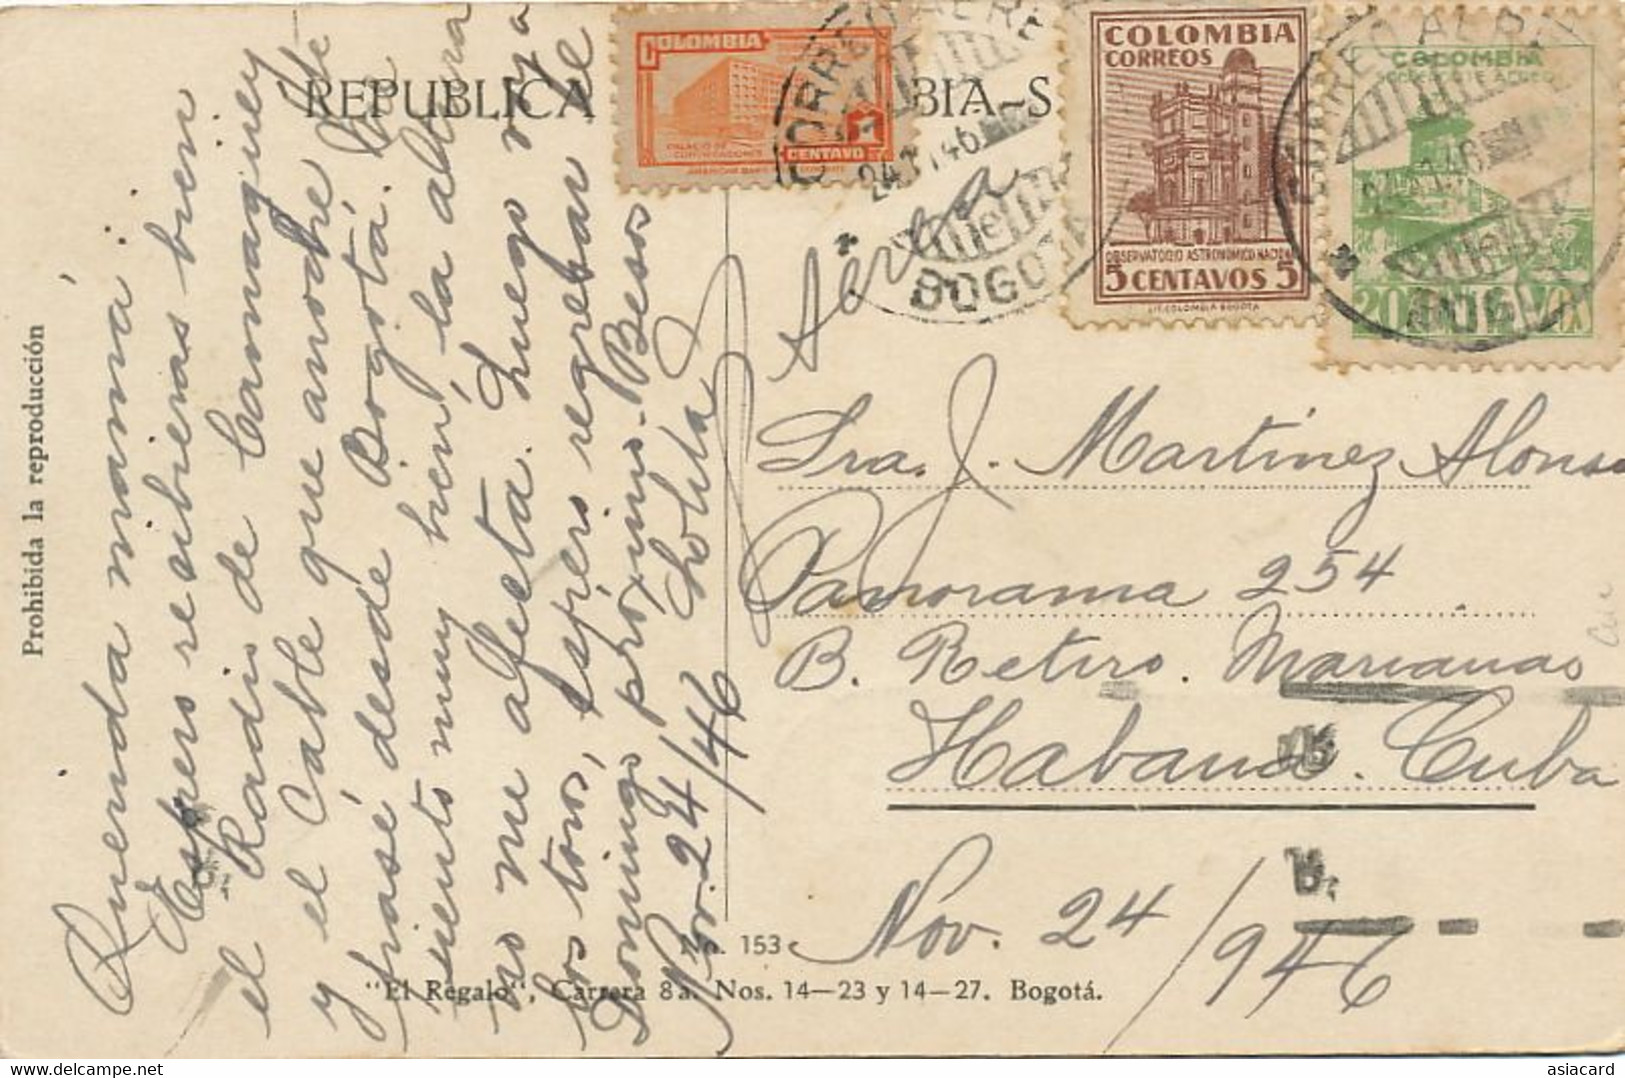 REPUBLICA BIA-S
COLOMBIA
PALACIO DE COMUNICACIONES
1 CENTAVO
CORREO AEREO
24 46
BOGOTA
COLOMBIA
CORREOS
OBSERVATORIO ASTRONOMICO NACIONAL
5 CENTAVOS 5
LIT. COLOMBIA BOGOTA
CORREO AEREO
COLOMBIA
20
Prohibida la reproducción
Querida mamá:
Espero recibieras bien
el Radio de Camagüey
y el Cable que anoche te
pasé desde Bogotá. Me
siento muy bien, la altura
no me afecta. Luego voy a
los toros, espero regresar el
Domingo próximo. Besos
Nov. 24/46
Aerea
Sra. J. Martínez Alonso
Panorama 254
B. Retiro. Marianao
Habana. Cuba
Nov. 24/946
No. 153
"El Regalo", Carrera 8a. Nos. 14-23 y 14-27. Bogotá.
asiacard